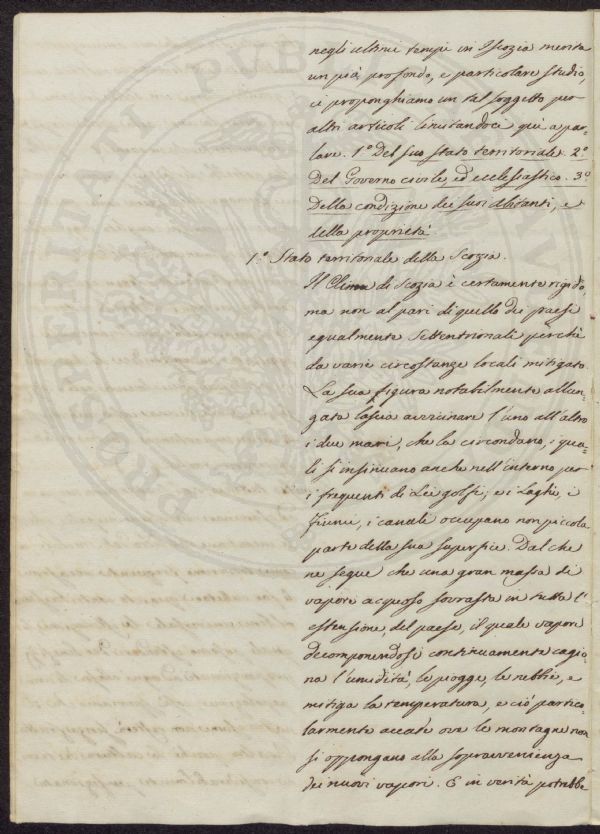 negli ultimi tempi in Iscozia merita
un più profondo, e particolare studio,
ci proponghiamo un tal soggetto per
altri articoli limitandoci quì a par-
lare. 1.° Del suo stato territoriale. 2.°
Del Governo civile, ed ecclesiastico. 3.°
Della condizione dei suoi abitanti, e
della proprietà.
1.° Stato territoriale della Scozia.
Il Clima di Scozia è certamente rigido,
ma non al pari di quello dei paesi
egualmente settentrionali perchè
da varie circostanze locali mitigato.
La sua figura notabilmente allun-
gata lascia avvicinare l'uno all'altro
i due mari, che la circondano, i qua-
li si insinuano anche nell'interno per
i frequenti di Lei golfi; e i Laghi, i
Fiumi, i canali occupano non piccola
parte della sua superfice. Dal che
ne segue che una gran massa di
vapore acquoso sovrasta in tutta l'
estensione del paese, il quale vapore
decomponendosi continuamente cagio-
na l'umidità, le piogge, le nebbie, e
mitiga la temperatura, e ciò partico-
larmente accade ove le montagne non
si oppongano alla sopravvenienza
dei nuovi vapori. E in verità potrebbe
PROSPERITATI PUBL